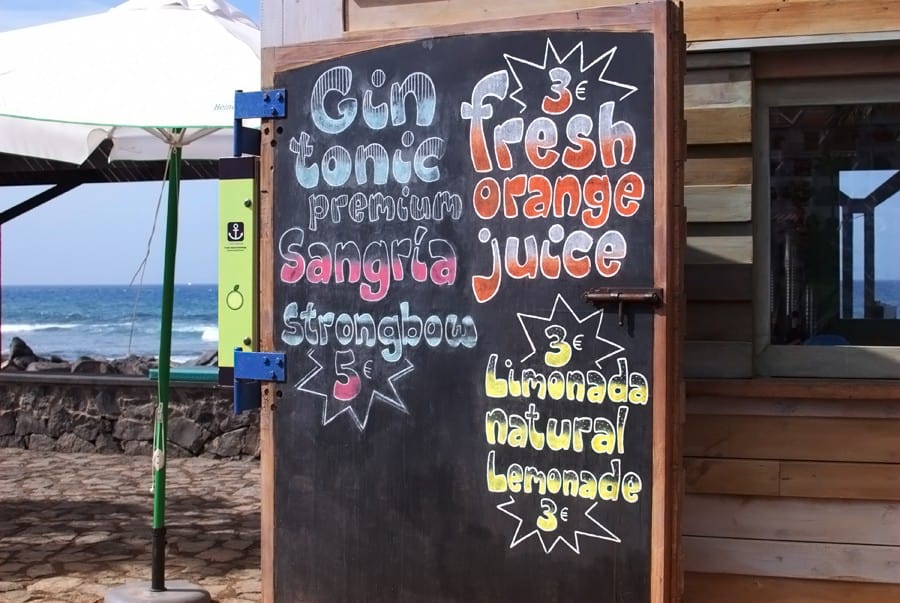 Gin
tonic
premium
Sangría
Strongbow
5€
3€
fresh
orange
juice
3€
Limonada
natural
Lemonade
3€